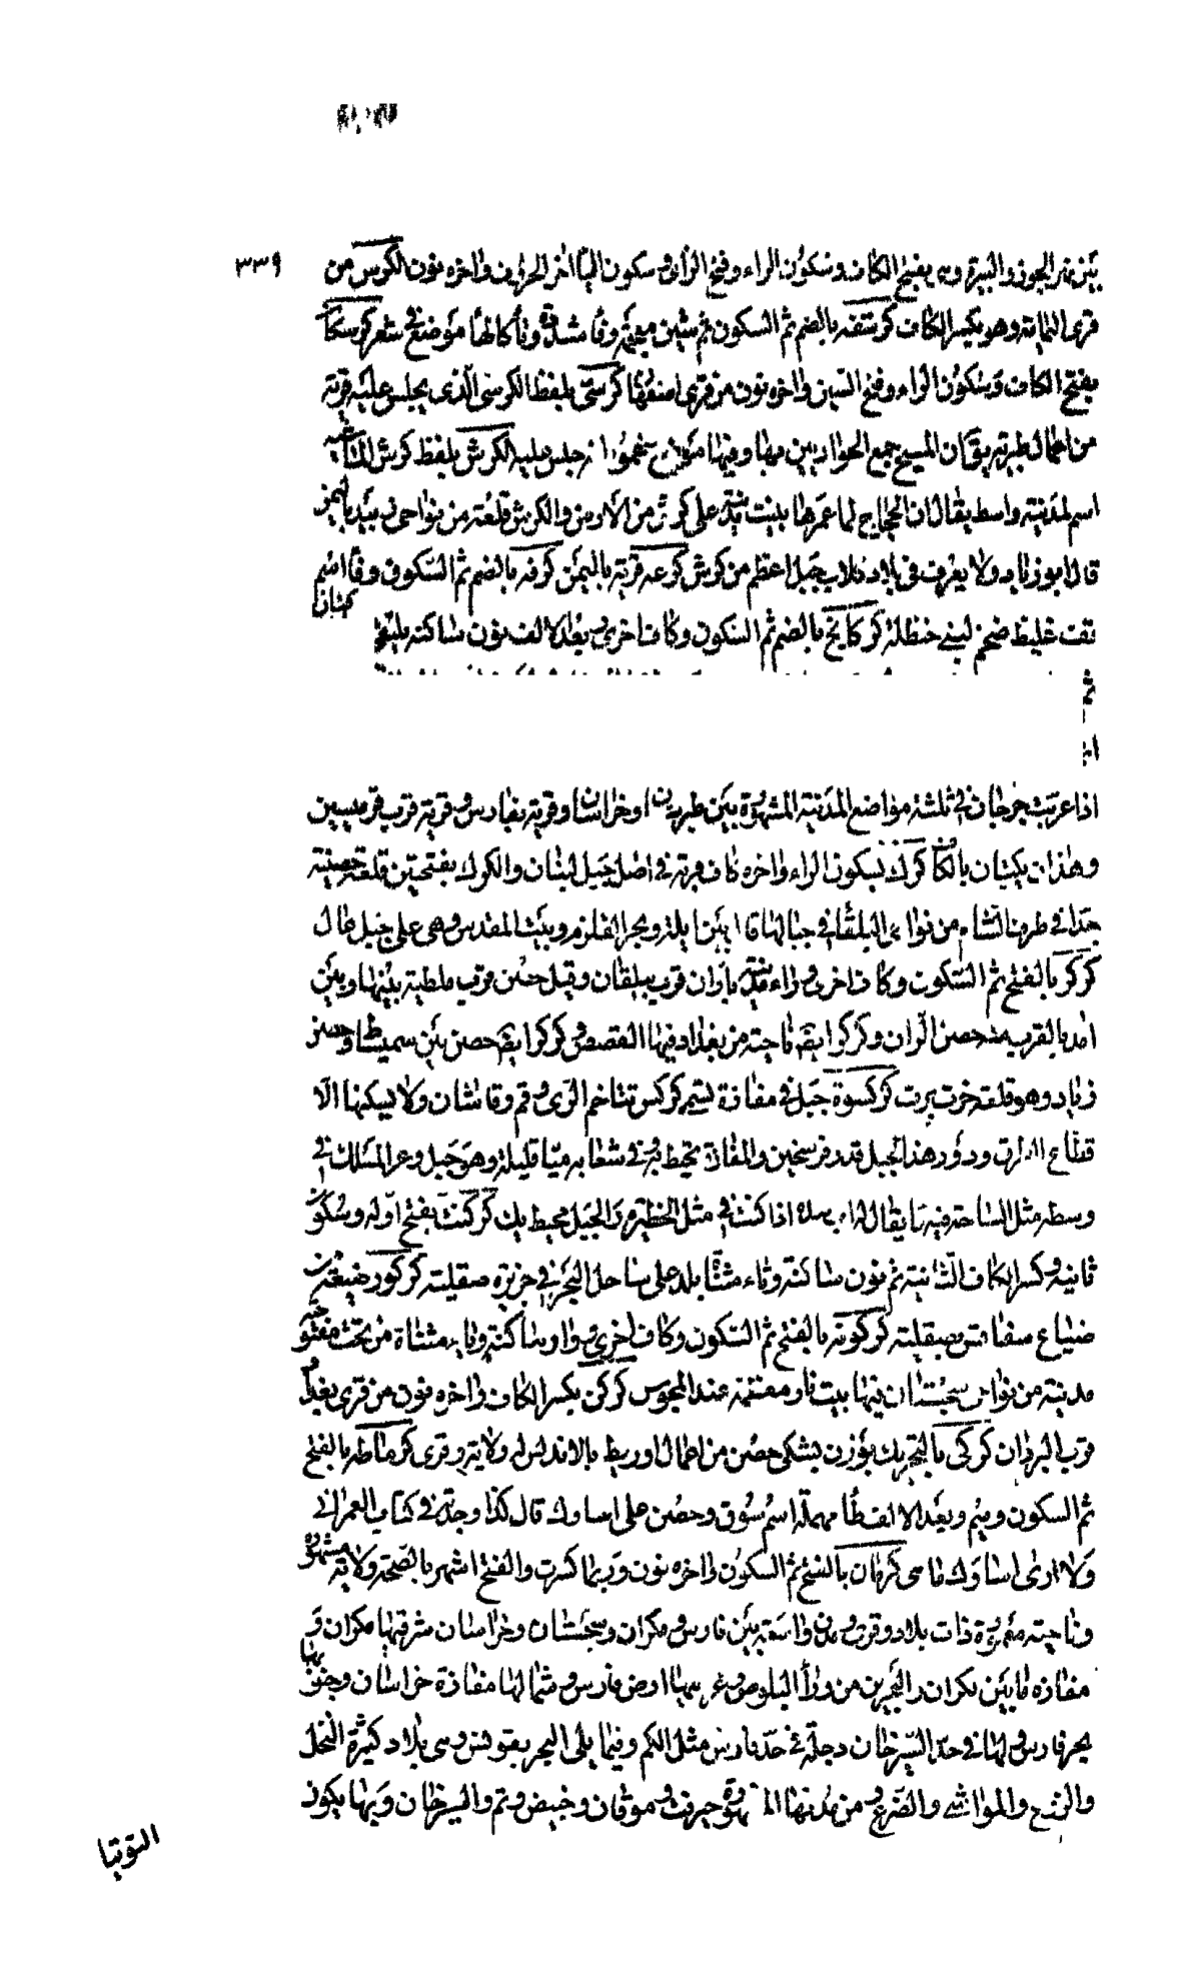 ٣٣٩
بين نهر الجوز والبيرة وهى بفتح الكاف وسكون الراء وفتح الزاى وسكون اليا اخر الحروف واخره نون الكرس من
قرى اليمامة وهو بكسر الكاف كرشفه بالضم ثم السكون ثم شين معجمة وفا مشددة وتأكالها موضع فى شعر كرسكان
بفتح الكاف وسكون الراء وفتح السين واخره نون من قرى اصفهان كرسى بلفظ الكرسى الذى يجلس عليه قرية
من اعمال طبرية يق ان المسيح جمع الحواريين بها وفيها موضع زعموا انه جلس عليه الكرش بلفظ كرش الماشيه
اسم لمدينة واسط يقال ان الحجاج لما عمرها بنيت مدينة على كرش من الارض والكرش قلعة من نواحى زبيد باليمن
قال ابو زياد ولا يعرف فى بلاد كلاب جبل اعظم من كرش كرعه قرية باليمن كرفه بالضم ثم السكون وفا اسم
قف غليظ ضخم لبنى حنظلة كركانج بالضم ثم السكون وكاف اخرى وبعد الالف نون ساكنه يلتقى
ساكنان
ثم
اذا عربت جرجان فى ثلثة مواضع المدينة المشهورة بين طبرستان وخراسان وقرية بفارس وقرية قرب قرميسين
وهذان يكتبان بالكاف كرك بسكون الراء واخره كاف قرية فى اصل جبل لبنان والكرك بفتحتين قلعة حصينة
جدا فى طرف الشام من نواحى البلقا فى جبالها بين ايلة وبحر القلزم وبيت المقدس وهى على جبل عال
كركر بالفتح ثم السكون وكاف اخرى وراء مدينة باران قرب بيلقان وقيل حصن قرب ملطية بينها وبين
امد بالقرب منه حصن الران وكركر ايضا ناحية من بغداد فيها القفص وكركر ايضا حصن بين سميساط وحصن
زياد وهو قلعة خرت برت كركسكوه جبل فى مفازة لسيم كركس تتاخم الرى وقم وقاشان ولا يسكنها الا
قطاع الطرق ودور هذا الجبل قدر فرسخين والمفازة يحيط به وفى شعابه مياه قليلة وهو جبل وعر المسلك فى
وسطه مثل الساحة فيه ما يقال له اب بيده اذا كنت فى مثل الحظيرة والجبل محيط بك كركنت بفتح اوله وسكون
ثانيه وكسر الكاف الثانية ثم نون ساكنة وتاء مثناة بلد على ساحل البحر فى جزيرة صقلية كركور ضيعة من
ضياع سفاقس بصقلية كركويه بالفتح ثم السكون وكاف اخرى وواو ساكنة وياء مثناة من تحت مفتوحه
مدينة من نواحى سجستان فيها بيت نار معظمة عند المجوس كركن بكسر الكاف واخره نون من قرى بغداد
قرب البردان كركى بالتحريك بوزن بشكى حصن من اعمال اوريط بالاندلس وله ولاية وقرى كرماطه بالفتح
ثم السكون وميم وبعد الالف طا مهملة اسم سوق وحصن على اساوك قال كذا وجدته فى كتاب العمرانى
ولا ادرى اساوك ما هى كرمان بالفتح ثم السكون واخره نون وربما كسرت والفتح اشهر بالصحة ولاية مشهورة
وناحية معمورة ذات بلاد وقرى ومدن واسعة بين فارس ومكران وسجستان وخراسان شرقيها مكران و
مفازة ما بين مكران والبحر من وراء البلوص وغربيها ارض فارس وشمالها مفازة خراسان وجنوبها
بحر فارس ولها فى حد السيرجان دخلة فى حد فارس مثل الكم وفيما يلى البحر تقويس وهى بلاد كثيرة النخل
والزرع والمواشى والضرع ومن مدنها المشهورة جيرفت وموقان وخبيص وبم والسيرجان وبها يكون
التوتيا